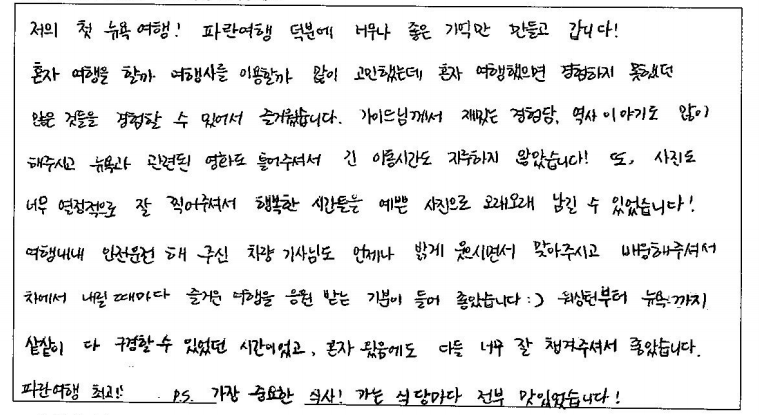 저의 첫 뉴욕 여행! 파란여행 덕분에 너무나 좋은 기억만 만들고 갑니다!
혼자 여행을 할까 여행사를 이용할까 많이 고민했는데 혼자 여행했으면 경험하지 못했던
많은 것들을 경험할 수 있어서 즐거웠습니다. 가이드님께서 재밌는 경험담, 역사 이야기도 많이
해주시고 뉴욕과 관련된 영화도 틀어주셔서 긴 이동시간도 지루하지 않았습니다! 또, 사진도
너무 열정적으로 잘 찍어주셔서 행복한 시간들을 예쁜 사진으로 오래오래 남길 수 있었습니다!
여행내내 안전운전 해 주신 차량 기사님도 언제나 밝게 웃으시면서 맞아주시고 배웅해주셔서
차에서 내릴 때마다 즐거운 여행을 응원 받는 기분이 들어 좋았습니다 :) 워싱턴부터 뉴욕까지
샅샅이 다 구경할 수 있었던 시간이었고, 혼자 왔음에도 다들 너무 잘 챙겨주셔서 좋았습니다.
파란여행 최고!! P.S. 가장 중요한 식사! 가는 식당마다 전부 맛있었습니다!